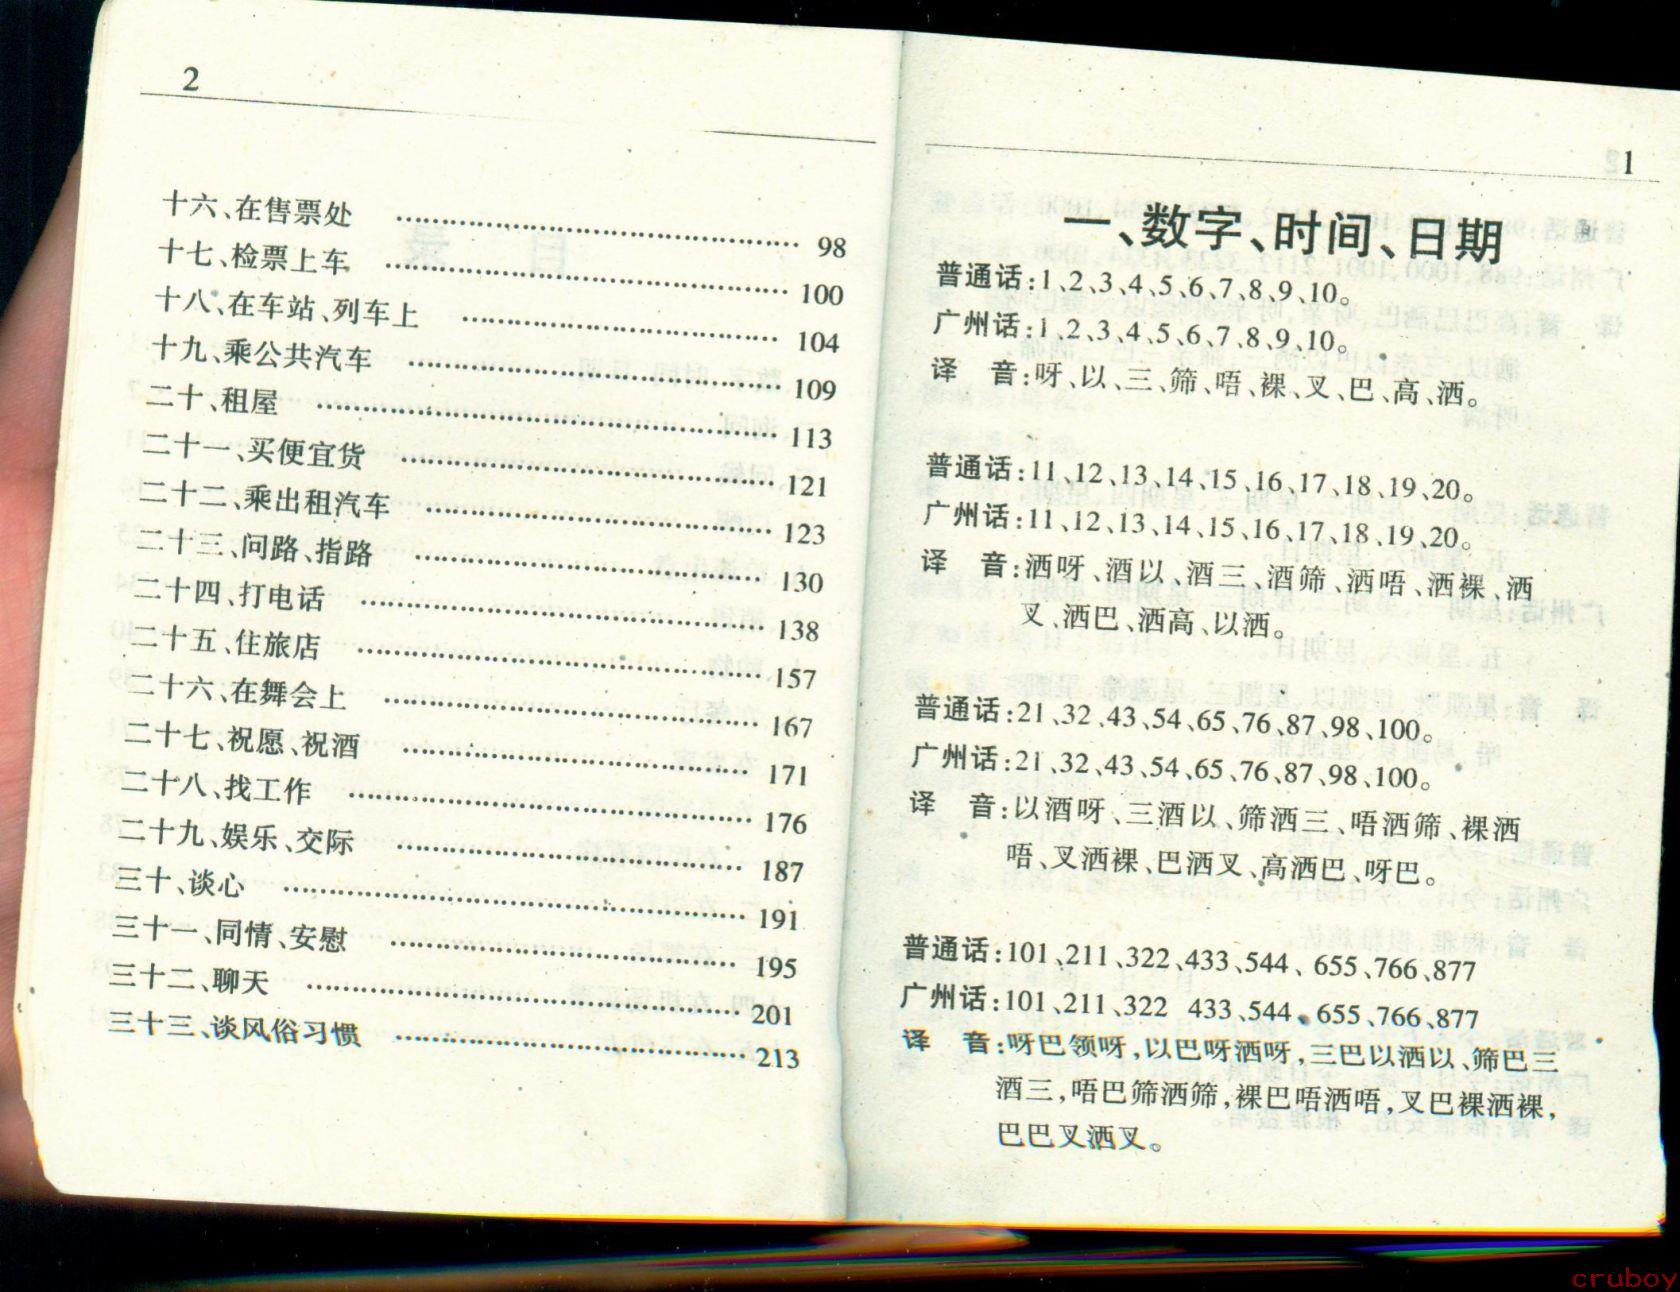 2
十六、在售票处 ………………………………… 98
十七、检票上车 ………………………………… 100
十八、在车站、列车上 ………………………… 104
十九、乘公共汽车 ……………………………… 109
二十、租屋 ……………………………………… 113
二十一、买便宜货 ……………………………… 121
二十二、乘出租汽车 …………………………… 123
二十三、问路、指路 …………………………… 130
二十四、打电话 ………………………………… 138
二十五、住旅店 ………………………………… 157
二十六、在舞会上 ……………………………… 167
二十七、祝愿、祝酒 …………………………… 171
二十八、找工作 ………………………………… 176
二十九、娱乐、交际 …………………………… 187
三十、谈心 ……………………………………… 191
三十一、同情、安慰 …………………………… 195
三十二、聊天 …………………………………… 201
三十三、谈风俗习惯 …………………………… 213
1
一、数字、时间、日期
普通话:1、2、3、4、5、6、7、8、9、10。
广州话:1、2、3、4、5、6、7、8、9、10。
译 音:呀、以、三、筛、唔、裸、叉、巴、高、洒。
普通话:11、12、13、14、15、16、17、18、19、20。
广州话:11、12、13、14、15、16、17、18、19、20。
译 音:洒呀、酒以、酒三、酒筛、洒唔、洒裸、洒
叉、洒巴、洒高、以洒。
普通话:21、32、43、54、65、76、87、98、100。
广州话:21、32、43、54、65、76、87、98、100。
译 音:以酒呀、三酒以、筛洒三、唔洒筛、裸洒
唔、叉洒裸、巴洒叉、高洒巴、呀巴。
普通话:101、211、322、433、544、655、766、877
广州话:101、211、322 433、544、655、766、877
译 音:呀巴领呀,以巴呀洒呀,三巴以洒以、筛巴三
酒三,唔巴筛洒筛,裸巴唔洒唔,叉巴裸洒裸,
巴巴叉洒叉。
cruboy